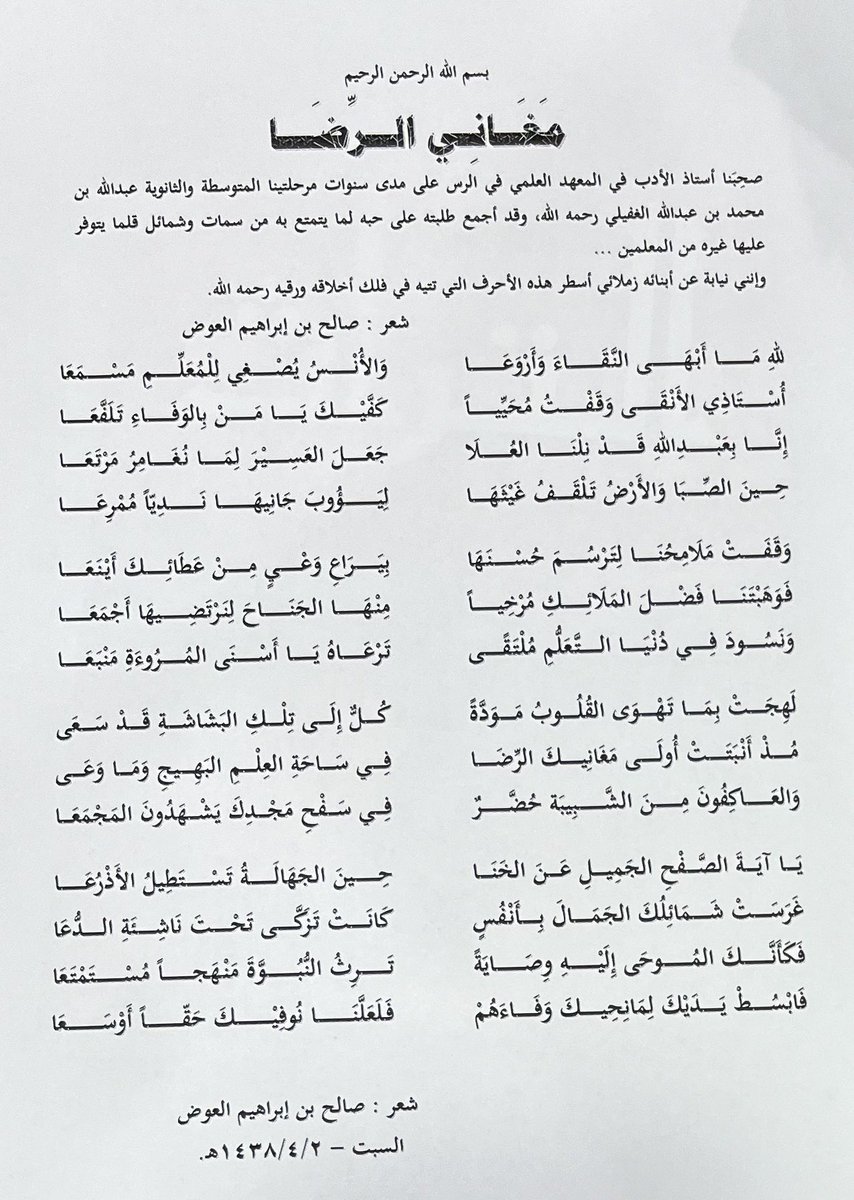 بسم الله الرحمن الرحيم
مَغَانِي الرِّضَا
صحِبَنا أستاذ الأدب في المعهد العلمي في الرس على مدى سنوات مرحلتينا المتوسطة والثانوية عبدالله بن
محمد بن عبدالله الغفيلي رحمه الله، وقد أجمع طلبته على حبه لما يتمتع به من سمات وشمائل قلما يتوفر
عليها غيره من المعلمين ...
وإنني نيابة عن أبنائه زملائي أسطر هذه الأحرف التي تتيه في فلك أخلاقه ورقيه رحمه الله.
شعر : صالح بن إبراهيم العوض
للهِ مَا أَبْهَى النَّقَاءَ وَأَرْوَعَا وَالأُنْسُ يُصْغِي لِلْمُعَلِّمِ مَسْمَعَا
أُسْتَاذِي الأَنْقَى وَقَفْتُ مُحَيِّياً كَفَّيْكَ يَا مَنْ بِالوَفَاءِ تَلَفَّعَا
إِنَّا بِعَبْدِاللهِ قَدْ نِلْنَا العُلَا جَعَلَ العَسِيْرَ لِمَا نُغَامِرُ مَرْتَعَا
حِينَ الصِّبَا وَالأَرْضُ تَلْقَفُ غَيْثَهَا لِيَؤُوبَ جَانِيهَا نَدِيّاً مُمْرِعَا
وَقَفَتْ مَلَامِحُنَا لِتَرْسُمَ حُسْنَهَا بِيَرَاعِ وَعْيٍ مِنْ عَطَائِكَ أَيْنَعَا
فَوَهَبْتَنَا فَضْلَ المَلَائِكِ مُرْخِياً مِنْهَا الجَنَاحَ لِنَرْتَضِيهَا أَجْمَعَا
وَنَسُودَ فِي دُنْيَا التَّعَلُّمِ مُلْتَقًى تَرْعَاهُ يَا أَسْنَى المُرُوءَةِ مَنْبَعَا
لَهِجَتْ بِمَا تَهْوَى القُلُوبُ مَوَدَّةً كُلٌّ إِلَى تِلْكِ البَشَاشَةِ قَدْ سَعَى
مُذْ أَنْبَتَتْ أُولَى مَغَانِيكَ الرِّضَا فِي سَاحَةِ العِلْمِ البَهِيجِ وَمَا وَعَى
وَالعَاكِفُونَ مِنَ الشَّبِيبَة حُضَّرٌ فِي سَفْحِ مَجْدِكَ يَشْهَدُونَ المَجْمَعَا
يَا آيَةَ الصَّفْحِ الجَمِيلِ عَنَ الخَنَا حِينَ الجَهَالَةُ تَسْتَطِيلُ الأَذْرُعَا
غَرَسَتْ شَمَائِلُكَ الجَمَالَ بِأَنْفُسٍ كَانَتْ تَزَكَّى تَحْتَ نَاشِئَةِ الدُّعَا
فَكَأَنَّكَ المُوحَى إِلَيْهِ وِصَايَةً تَرِثُ النُّبُوَّةَ مَنْهَجاً مُسْتَمْتَعَا
فَابْسُطْ يَدَيْكَ لِمَانِحِيكَ وَفَاءَهُمْ فَلَعَلَّنَا نُوفِيْكَ حَقّاً أَوْسَعَا
شعر : صالح بن إبراهيم العوض
السبت – ١٤٣٨/٤/٢هـ.